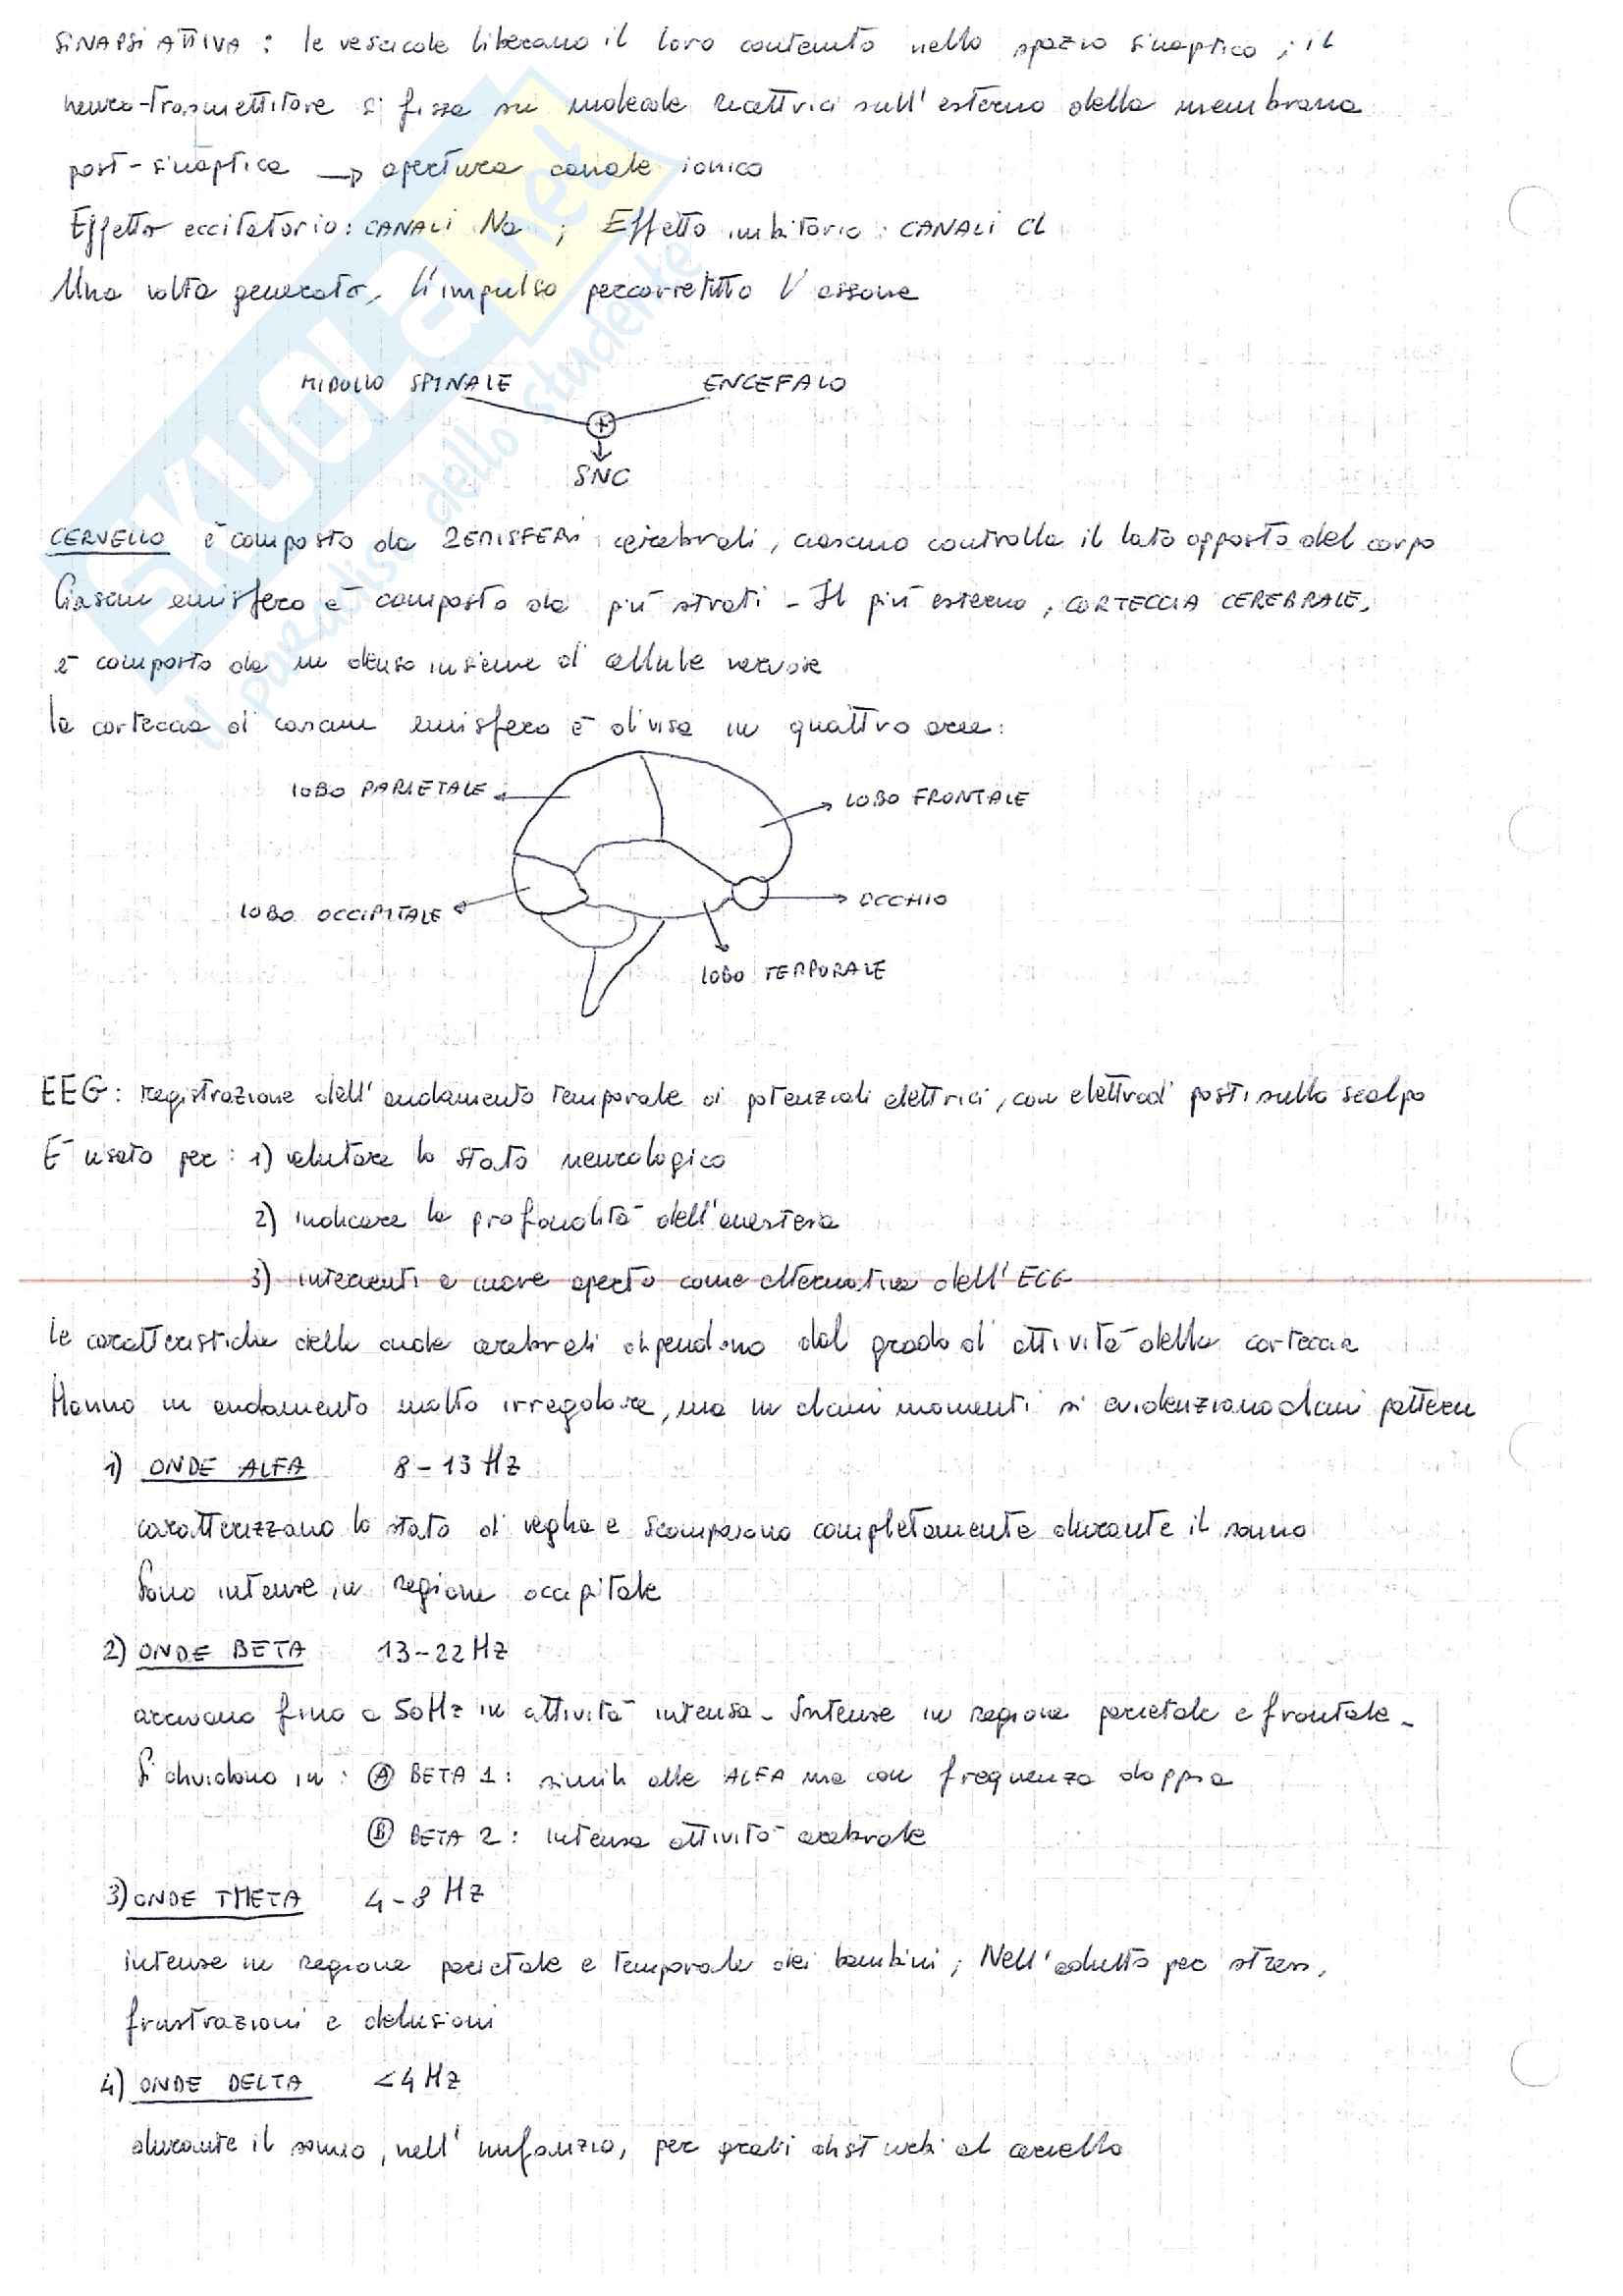 SINAPSI ATTIVA : le vescicole liberano il loro contenuto nello spazio sinaptico ; il
neuro-trasmettitore si fissa su molecole recettrici sull'esterno della membrana
post-sinaptica → apertura canale ionico
Effetto eccitatorio: CANALI Na ; Effetto inibitorio : CANALI Cl
Una volta generato, l'impulso percorre tutto l'assone
MIDOLLO SPINALE ENCEFALO
+
SNC
CERVELLO è composto da 2 EMISFERI cerebrali, ciascuno controlla il lato opposto del corpo
Ciascun emisfero è composto da più strati - Il più esterno, CORTECCIA CEREBRALE,
è composto da un denso insieme di cellule nervose
la corteccia di ciascun emisfero è divisa in quattro aree:
LOBO PARIETALE
LOBO FRONTALE
LOBO OCCIPITALE
OCCHIO
LOBO TEMPORALE
EEG: registrazione dell'andamento temporale di potenziali elettrici, con elettrodi posti sullo scalpo
E' usato per: 1) valutare lo stato neurologico
2) indicare la profondità dell'anestesia
3) interventi a cuore aperto come alternativa dell'ECG
le caratteristiche delle onde cerebrali dipendono dal grado di attività della corteccia
Hanno un andamento molto irregolare, ma in alcuni momenti si evidenziano alcuni pattern
1) ONDE ALFA 8-13 Hz
caratterizzano lo stato di veglia e scompaiono completamente durante il sonno
Sono intense in regione occipitale
2) ONDE BETA 13-22 Hz
arrivano fino a 50 Hz in attività intensa - Intense in regione parietale e frontale -
Si dividono in : A BETA 1 : simili alle ALFA ma con frequenza doppia
B BETA 2 : intensa attività cerebrale
3) ONDE THETA 4-8 Hz
intense in regione parietale e temporale dei bambini ; Nell'adulto per stress,
frustrazioni e delusioni
4) ONDE DELTA <4 Hz
durante il sonno, nell'infanzia, per gravi disturbi al cervello
SKUOLA.net
il paradiso dello studente